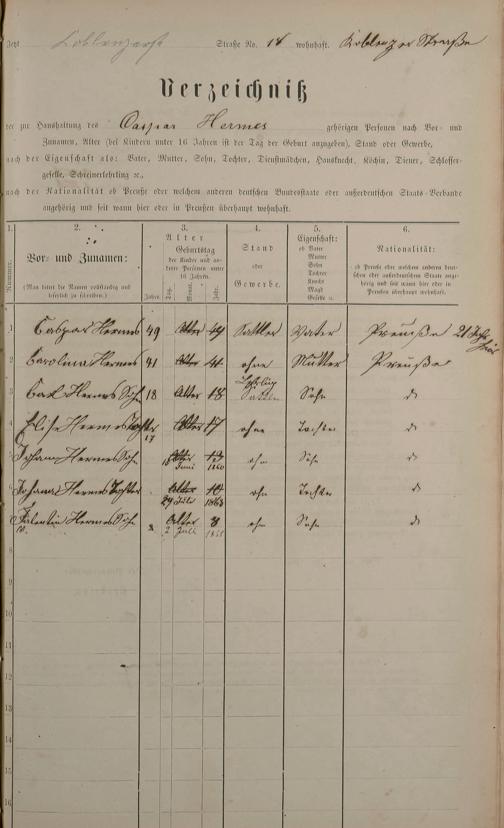 Jetzt Coblenzerst Straße No. 18 wohnhaft. Koblenzer Straße
Verzeichniß
der zur Haushaltung des Caspar Hermes gehörigen Personen nach Vor- und
Zunamen, Alter (bei Kindern unter 16 Jahren ist der Tag der Geburt anzugeben), Stand oder Gewerbe,
nach der Eigenschaft als: Vater, Mutter, Sohn, Tochter, Dienstmädchen, Hausknecht, Köchin, Diener, Schlosser-
geselle, Schreinerlehrling ꝛc.,
nach der Nationalität ob Preuße oder welchem anderen deutschen Bundesstaate oder außerdeutschen Staats-Verbande
angehörig und seit wann hier oder in Preußen überhaupt wohnhaft.
1. 2. 3. 4. 5. 6.
Nummer.
Vor- und Zunamen:
(Man bittet die Namen vollständig und
leserlich zu schreiben.)
Alter
Jahre.
Geburtstag
der Kinder und an-
derer Personen unter
16 Jahren.
Tag. Monat. Jahr.
Stand
oder
Gewerbe.
Eigenschaft:
ob Vater
Mutter
Sohn
Tochter
Knecht
Magd
Geselle u.
Nationalität:
ob Preuße oder welchem anderen deut-
schen oder außerdeutschen Staate ange-
hörig und seit wann hier oder in
Preußen überhaupt wohnhaft.
1 Caspar Hermes 49 Alter 49 Sattler Vater Preuße 21 Jahr hier
2 Carolina Hermes 41 Alter 41 ohne Mutter Preuße
3 Carl Hermes Sohn 18 Alter 18 Lehrling Sattler Sohn do
4 Elise Hermes Tochter 17 Alter 17 ohne Tochter do
5 Johann Hermes Sohn Alter 13 ohn Sohn do
18 Juni 1860
6 Johanna Hermes Tochter Alter 10 ohn Tochter do
29 Juli 1863
Valentin Hermes Sohn Alter 8 ohn Sohn do
2 Juli
8
9
10
11
12
13
14
15
16